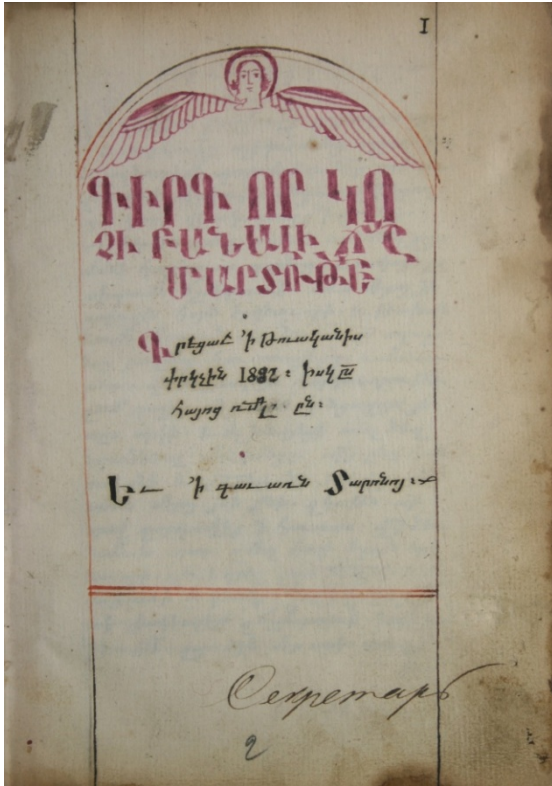 1
ԳԻՐԳ ՈՐ ԿՈ
ՉԻ ԲԱՆԱԼԻ
ՄԱՐՏՈՒԹԵ
Գրեցաւ ՚ի թուականիս
փրկչին 1882 ։ իսկ
հայոց
Եւ ՚ի գաւառն Տարոնոյ ։
Секретарь
2